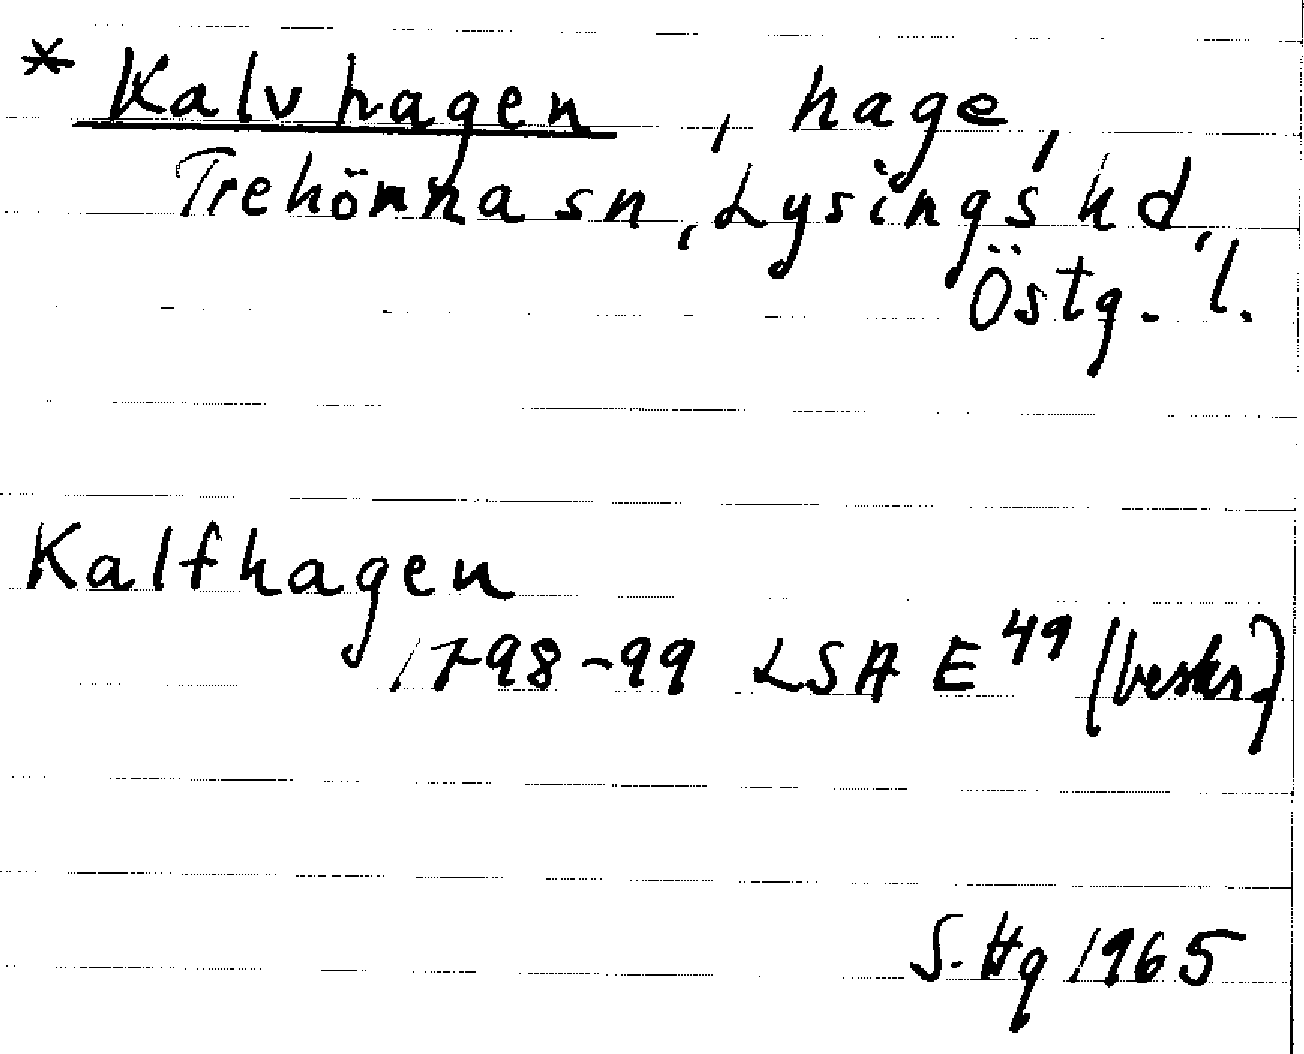 * Kalvhagen, hage,
Trehörna sn, Lysings hd,
Östg. l.
Kalfhagen
1798-99 LSA E 49 (beskr.)
S. Hg 1965